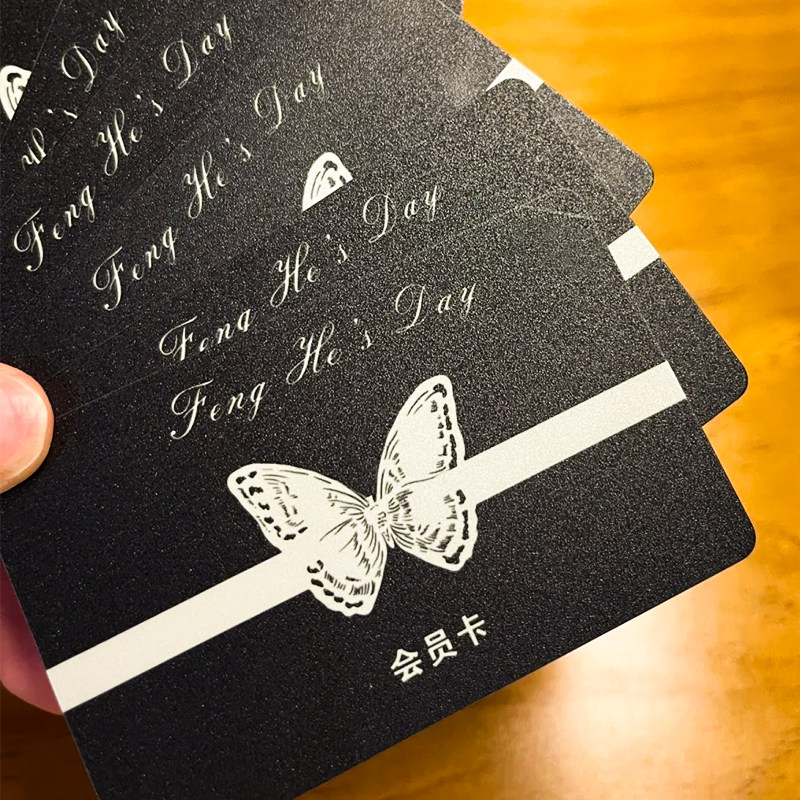 's Day
Feng He's Day
Feng He's Day
Feng He's Day
Feng He's Day
会员卡